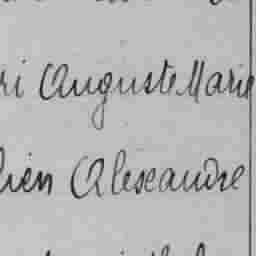 ri Auguste Marie
lien Alexandre